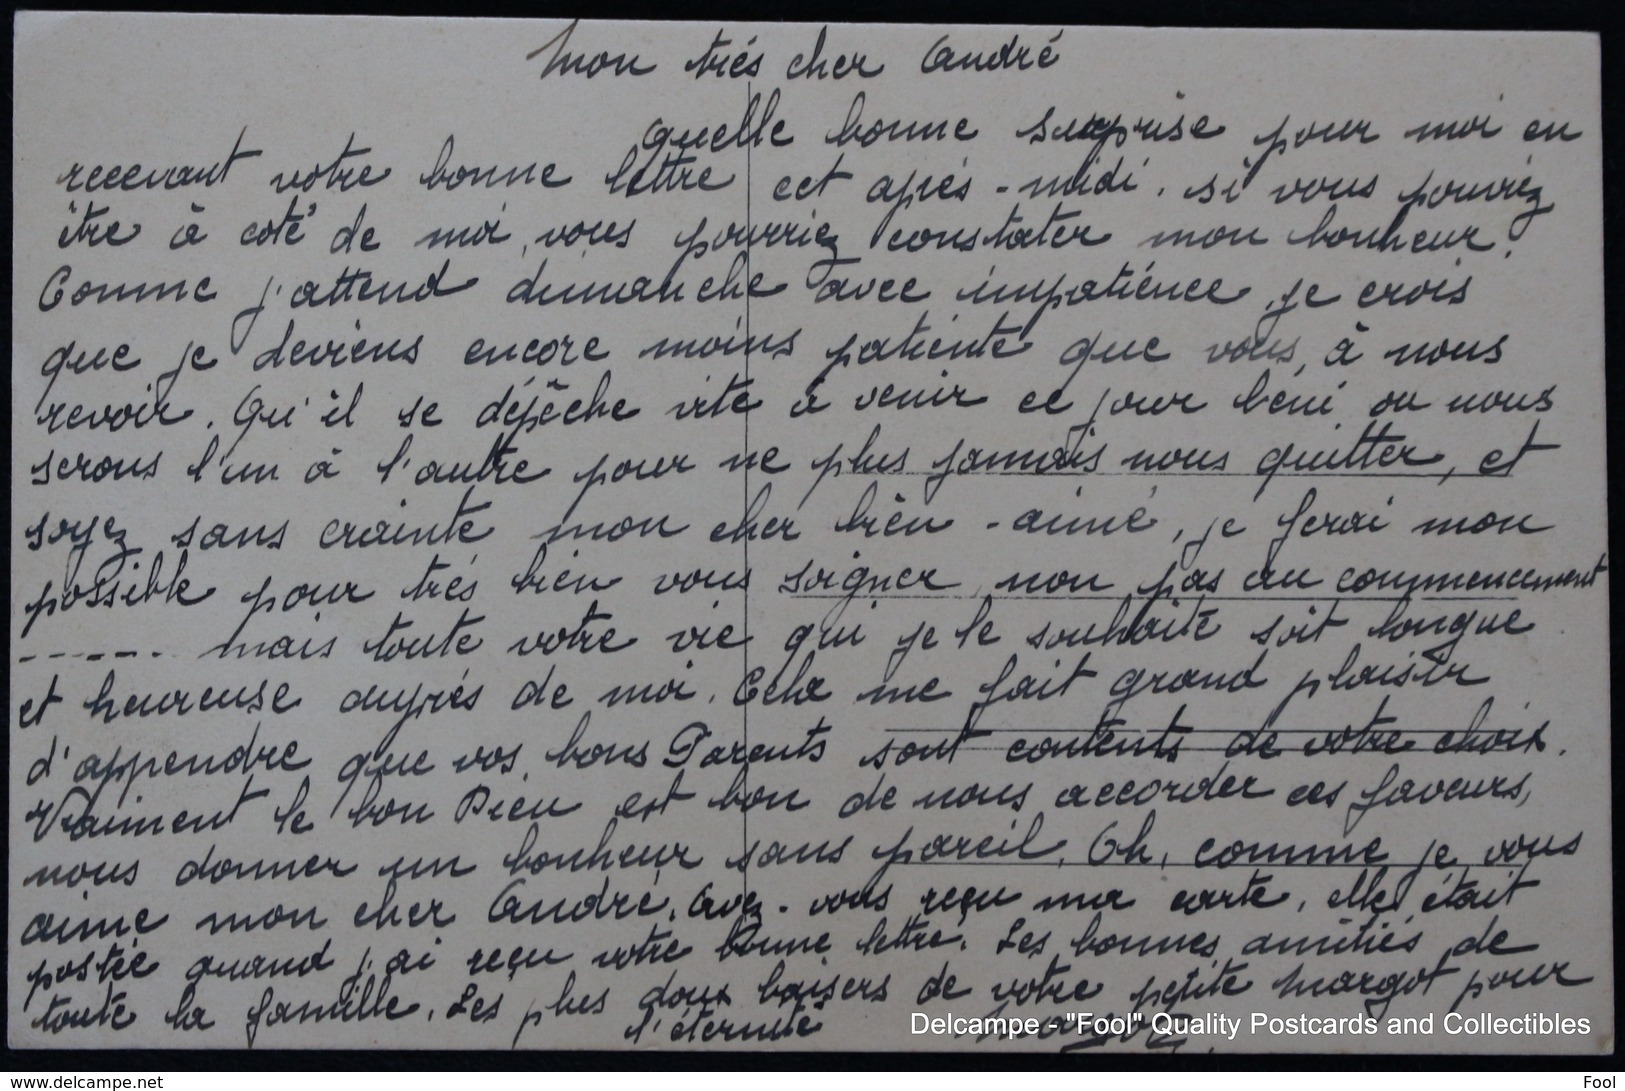 Mon trés cher André
Quelle bonne surprise pour moi en
recevant votre bonne lettre cet aprés-midi. Si vous pouviez
être à coté de moi, vous pourriez constater mon bonheur.
Comme j'attend dimanche avec impatience, je crois
que je deviens encore moins patiente que vous, à nous
revoir. Qu'il se dépêche vite à venir ce jour béni ou nous
serons l'un à l'autre pour ne plus jamais nous quitter, et
soyez sans crainte mon cher bien-aimé, je ferai mon
possible pour trés bien vous soigner, non pas au commencement
------. mais toute votre vie qui je le souhaite soit longue
et heureuse auprés de moi. Cela me fait grand plaisir
d'appendre que vos bons Parents sont contents de votre choix.
Vraiment le bon Dieu est bon de nous accorder ces faveurs,
nous donner un bonheur sans pareil. Oh, comme je vous
aime mon cher André. Avez-vous reçu ma carte, elle était
postée quand j'ai reçu votre bonne lettre. Les bonnes amitiés de
toute la famille. Les plus doux baisers de votre petite Margot pour
l'éternité
Margot
Delcampe - "Fool" Quality Postcards and Collectibles
www.delcampe.net
Fool